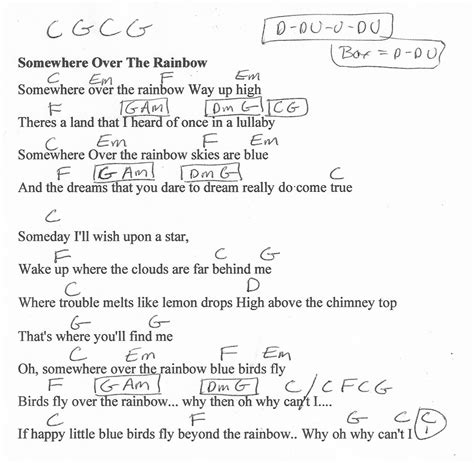 C G C G D-DU-U-DU
Box = D-DU
Somewhere Over The Rainbow
C Em F Em
Somewhere over the rainbow Way up high
F G Am Dm G C G
Theres a land that I heard of once in a lullaby
C Em F Em
Somewhere Over the rainbow skies are blue
F G Am Dm G C
And the dreams that you dare to dream really do come true
C
Someday I'll wish upon a star,
F C G
Wake up where the clouds are far behind me
C D
Where trouble melts like lemon drops High above the chimney top
G G
That's where you'll find me
C Em F Em
Oh, somewhere over the rainbow blue birds fly
F G Am Dm G C / C F C G
Birds fly over the rainbow... why then oh why can't I....
C F G C C
If happy little blue birds fly beyond the rainbow.. Why oh why can't I